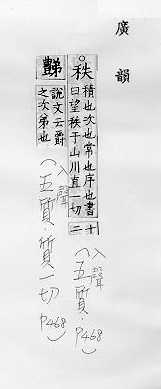 廣韻
秩
積也次也常也序也書十
曰望秩于山川直一切二
(入聲 五質 P468)
豑
說文云爵
之次弟也
(入聲 五質.質一切 P468)